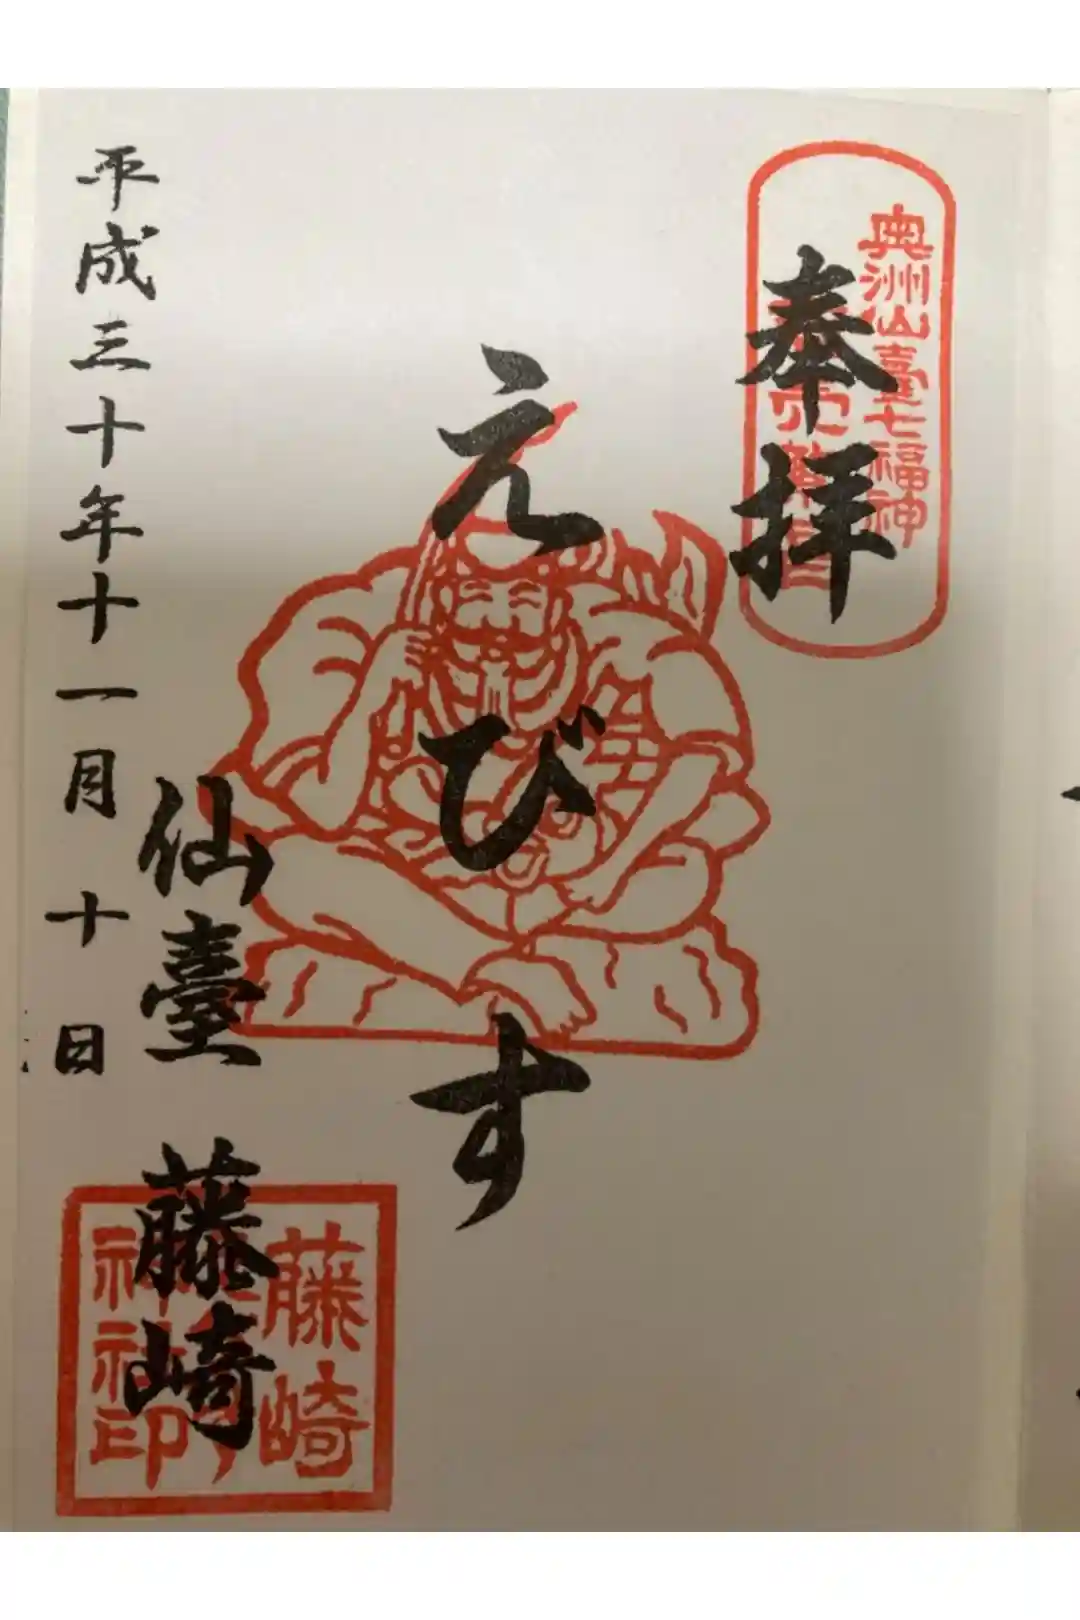 奥洲仙臺七福神
奉拝
えびす
仙臺 藤崎
平成三十年十一月十日
藤崎
神社印